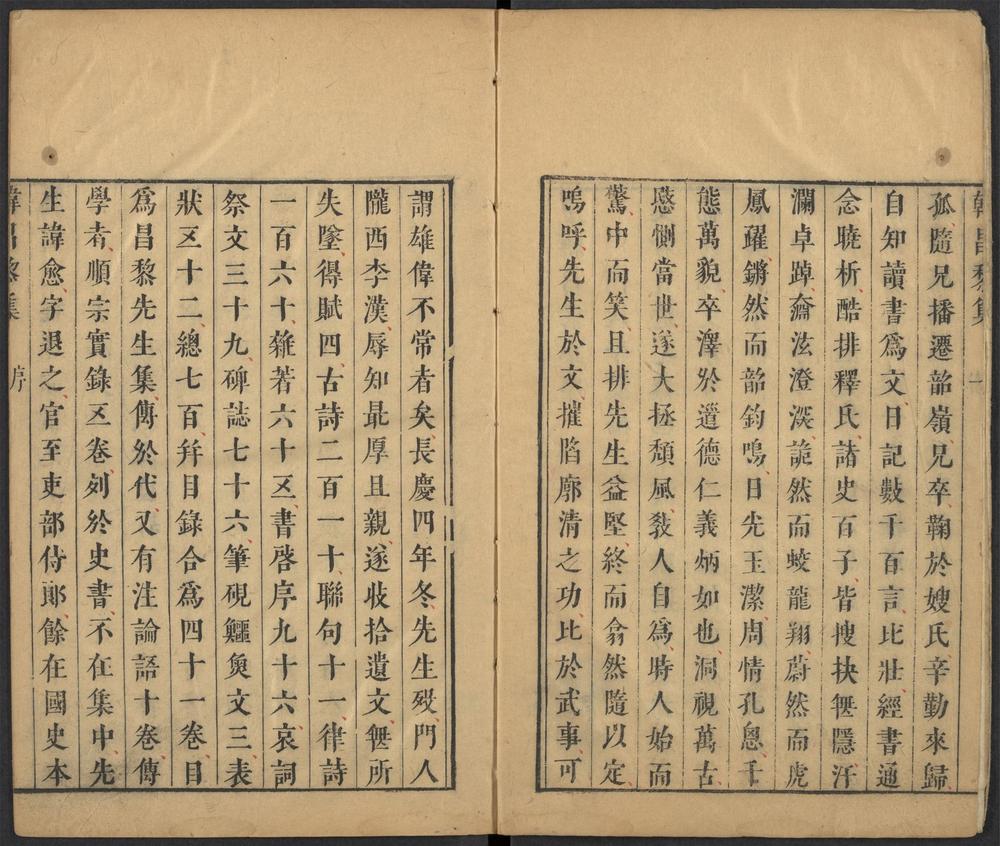 韓昌黎集
一
孤隨兄播遷韶嶺兄卒鞠於嫂氏辛勤來歸
自知讀書爲文日記數千百言比壯經書通
念曉析酷排釋氏諸史百子皆搜抉無隱汗
瀾卓踔奫泫澄深詭然而蛟龍翔蔚然而虎
鳳躍鏘然而韶鈞鳴日光玉潔周情孔思千
態萬貌卒澤於道德仁義炳如也洞視萬古
愍惻當世遂大拯頹風敎人自爲時人始而
驚中而笑且排先生益堅終而翕然隨以定
嗚呼先生於文摧陷廓清之功比於武事可
謂雄偉不常者矣長慶四年冬先生歿門人
隴西李漢辱知最厚且親遂收拾遺文無所
失墜得賦四古詩二百一十聯句十一律詩
一百六十雜著六十五書啓序九十六哀詞
祭文三十九碑誌七十六筆硯鱷魚文三表
狀五十二總七百幷目錄合爲四十一卷目
爲昌黎先生集傳於代又有注論語十卷傳
學者順宗實錄五卷列於史書不在集中先
生諱愈字退之官至吏部侍郞餘在國史本
韓昌黎集
序